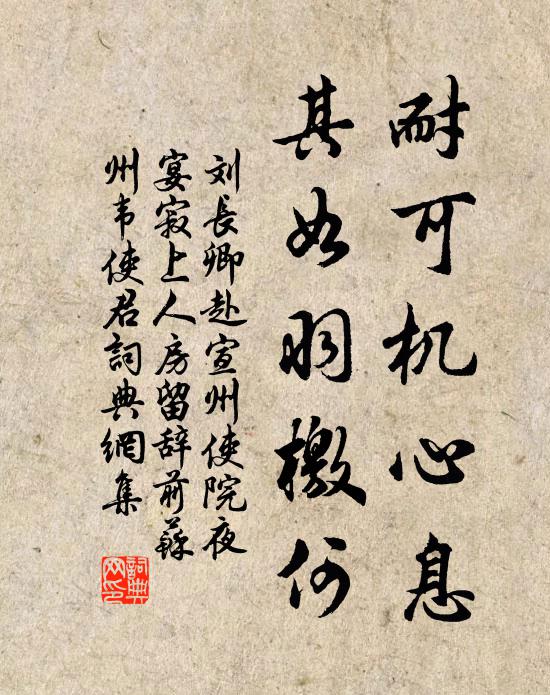 耐可机心息
其如羽檄何
刘長卿赴宣州使院夜
宴寂上人房留辞前蘇
州韦使君詞典網集
詞典
网印